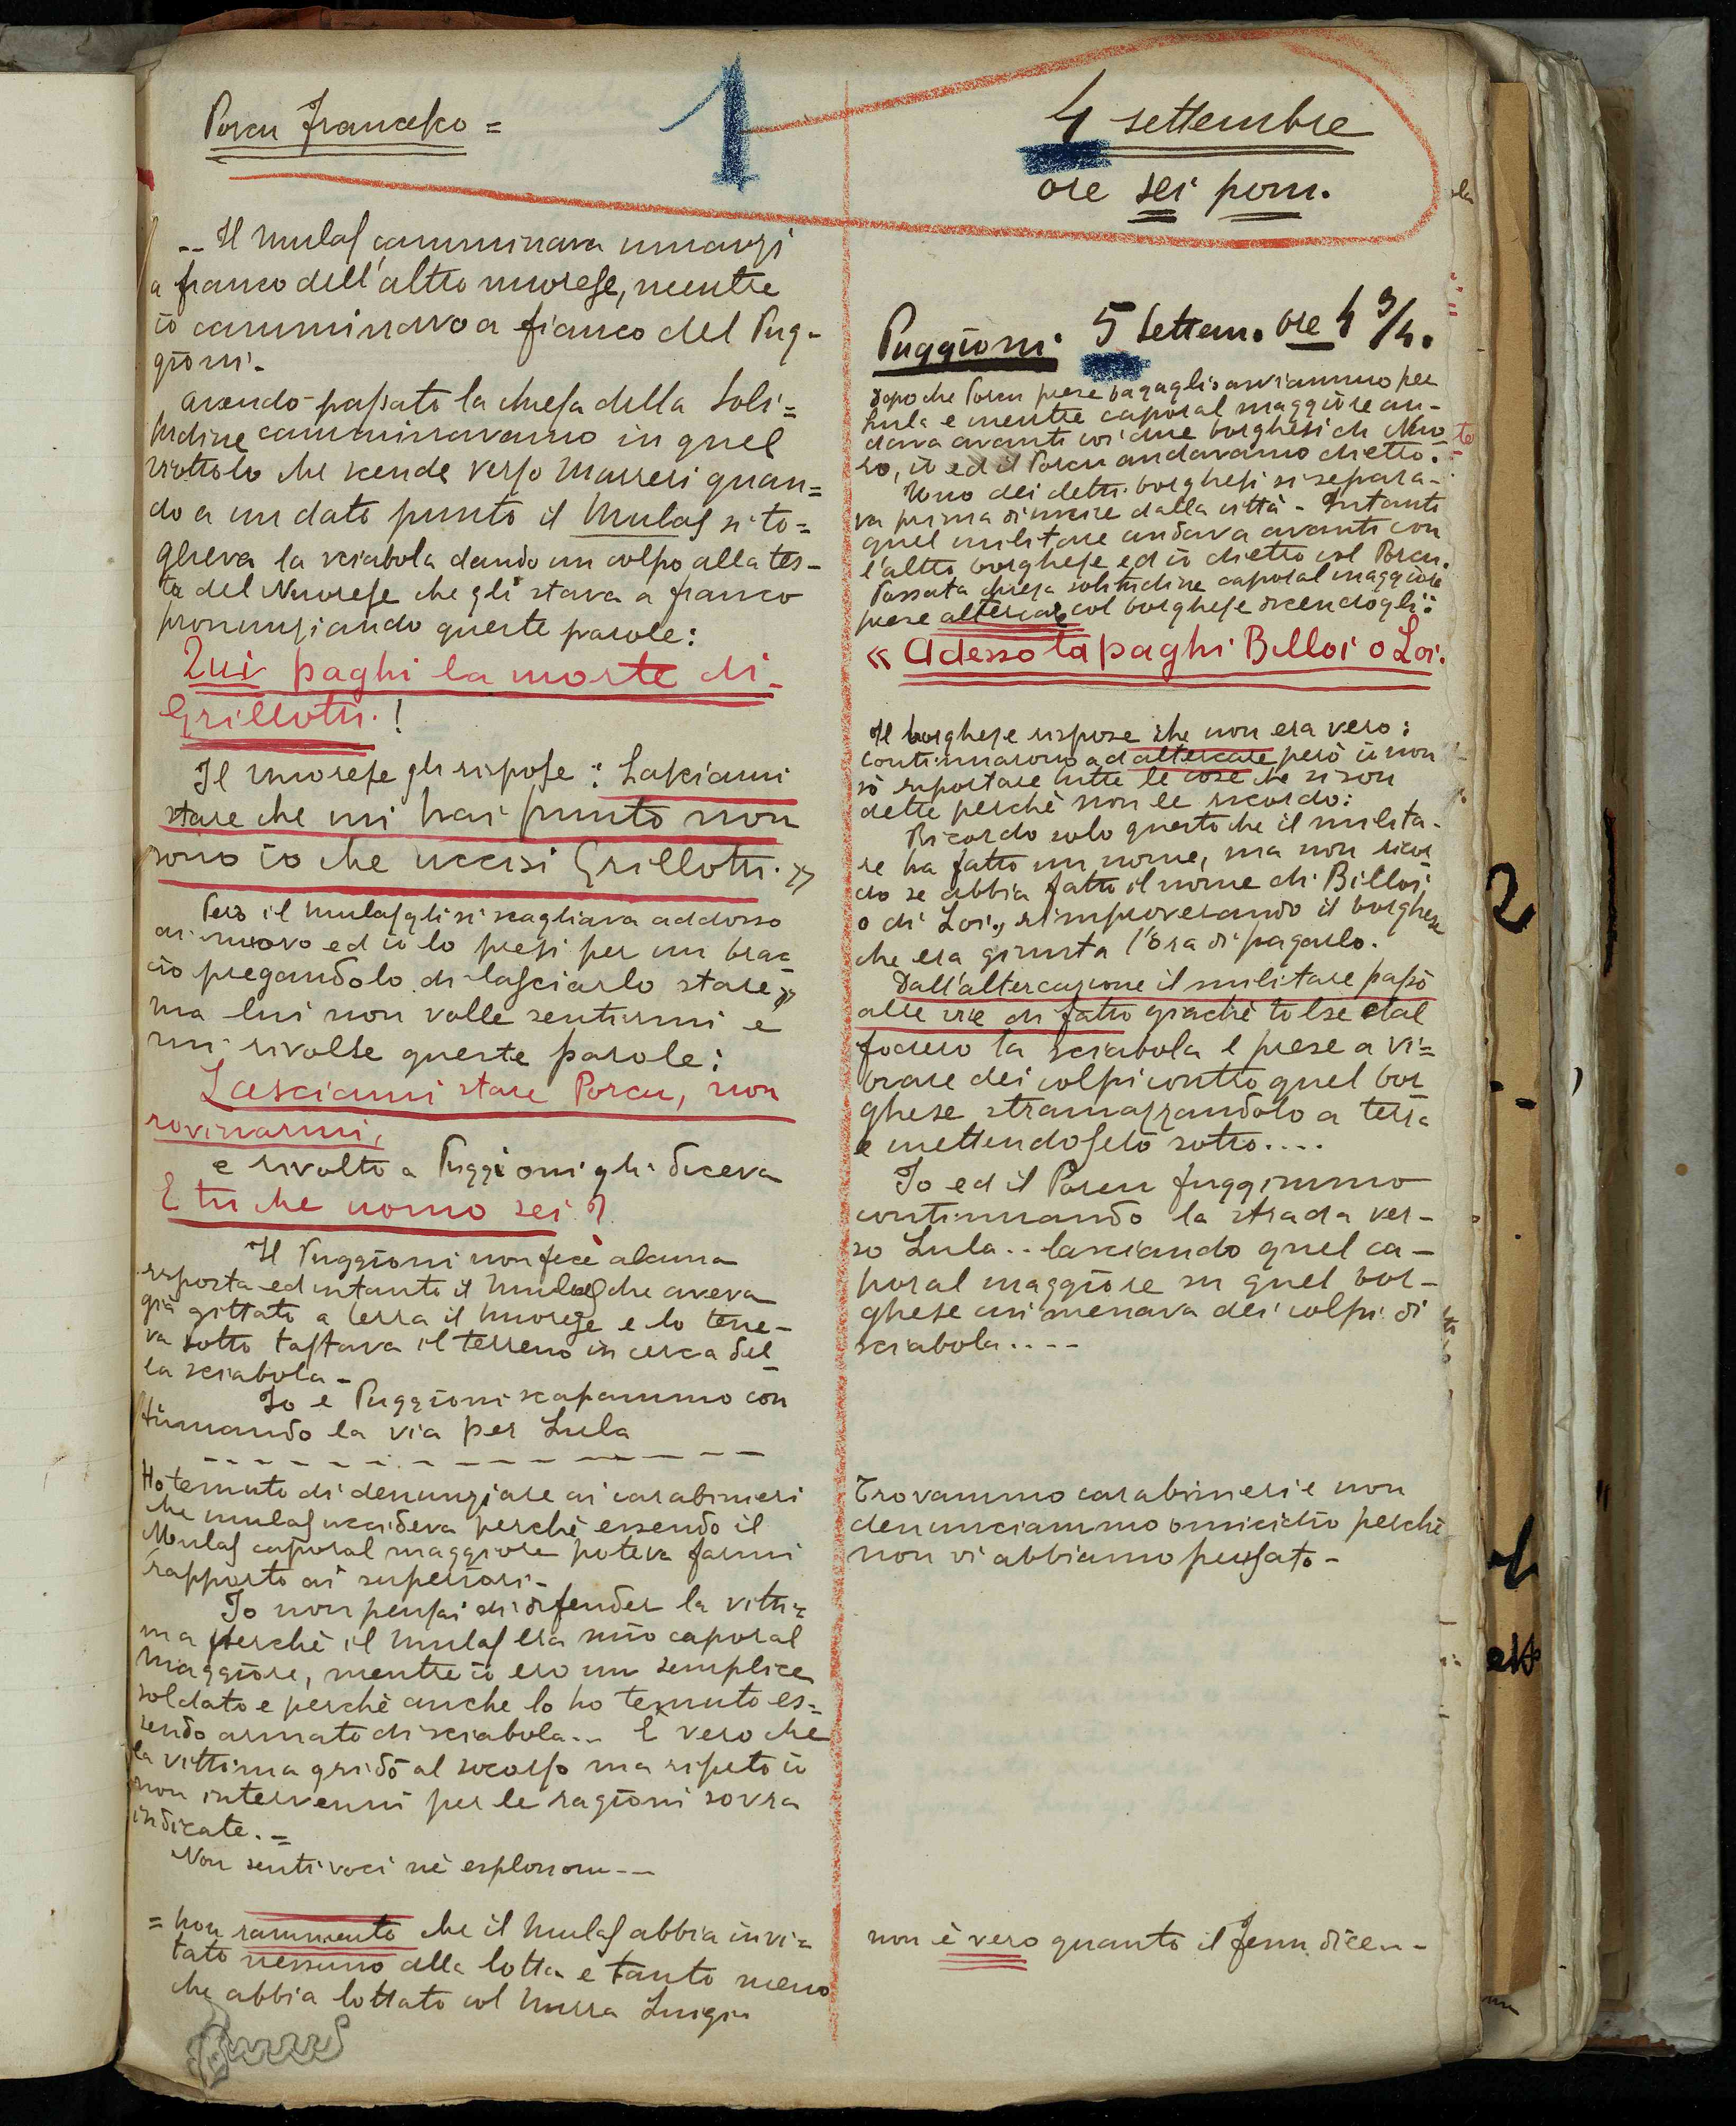 Porcu Francesco =
1
4 settembre
ore sei pom.
-- Il Mulas camminava innanzi
a fianco dell'altro nuorese, mentre
io camminavo a fianco del Pug-
gioni.
avendo passato la chiesa della Soli=
tudine camminavamo in quel
viottolo che scende verso Marreri quan=
do a un dato punto il Mulas si to=
glieva la sciabola dando un colpo alla tes-
ta del Nuorese che gli stava a fianco
pronunziando queste parole:
Qui paghi la morte di
Grillotti.!
Il nuorese gli rispose: Lasciami
stare che mi hai punto non
sono io che uccisi Grillotti.»
Però il Mulas gli si scagliava addosso
di nuovo ed io lo presi per un brac
cio pregandolo di lasciarlo stare»
ma lui non volle sentirmi e
mi rivolse queste parole:
Lasciami stare Porcu, non
rovinarmi,
e rivolto a Puggioni gli diceva
E tu che uomo sei?
Il Puggioni non fece alcuna
risposta ed intanto il Mulas che aveva
già gittato a terra il nuorese e lo tene-
va sotto tastava il terreno in cerca del
la sciabola-
Io e Puggioni scapammo con
tinuando la via per Lula
Ho temuto di denunziare ai carabinieri
che Mulas uccideva perchè essendo il
Mulas caporal maggiore poteva farmi
rapporto ai superiori-
Io non pensai di difender la vitti=
ma perchè il Mulas era mio caporal
maggiore, mentre io ero un semplice
soldato e perchè anche lo ho temuto es=
sendo armato di sciabola... È vero che
la vittima gridò al socorso ma ripeto io
non intervenni per le ragioni sovra
indicate.=
Non senti voci nè esplosioni---
= non rammento che il Mulas abbia invi=
tato nessuno alla lotta e tanto meno
che abbia lottato col Murra Luigi
Puggioni. 5 Settem. ore 4 3/4.
dopo che Porcu prese bagaglio avviammo per
Lula e mentre caporal maggiore an-
dava avanti coi due borghesi di Nuo
ro, io ed il Porcu andavamo dietro.
Uno dei detti borghesi si separa-
va prima di uscire dalla città - Intanto
quel militare andava avanti con
l'altro borghese ed io dietro col Porcu.
Passata chiesa solitudine caporal maggiore
prese altercar col borghese dicendogli:
« Adesso la paghi Billoi o Loi.
Il borghese rispose che non era vero:
continuarono ad altercare però io non
sò riportare tutte le cose che si son
dette perchè non le ricordo:
Ricordo solo questo che il milita-
re ha fatto un nome, ma non ricor
do se abbia fatto il nome di Billoi,
o di Loi, rimproverando il borghese
che era giunta l'ora di pagarlo.
Dall'altercazione il militare passò
alle vie di fatto giachè tolse dal
fodero la sciabola e prese a vi=
brare dei colpi contro quel bor
ghese stramazzandolo a terra
e mettendoselo sotto....
Io ed il Porcu fuggimmo
continuando la strada ver-
so Lula.. lasciando quel ca-
poral maggiore su quel bor-
ghese cui menava dei colpi di
sciabola....
Trovammo carabinieri e non
denunciammo omicidio perchè
non vi abbiamo pensato-
non è vero quanto il Fenu dice..-
2